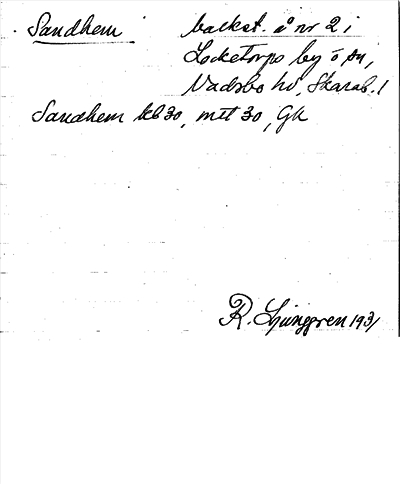 Sandhem backst. å nr 2 i
Locketorps by o sn,
Vadsbo hd, Skarab. l
Sandhem kb 30, mtl 30, Gk
R. Ljunggren 1931